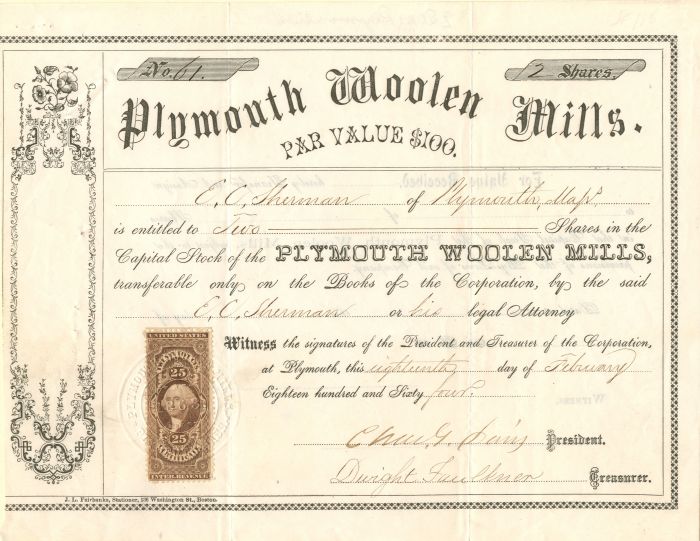 No. 61.
2 Shares.
Plymouth Woolen Mills.
PAR VALUE $100.
E. C. Sherman of Plymouth, Mass
is entitled to Two Shares in the
Capital Stock of the PLYMOUTH WOOLEN MILLS,
transferable only on the Books of the Corporation, by the said
E. C. Sherman or his legal Attorney
Witness the signatures of the President and Treasurer of the Corporation,
at Plymouth, this eighteenth day of February
Eighteen hundred and Sixty four.
Chas. G. Davis President.
Dwight Faulkner Treasurer.
UNITED STATES
25
25
INTER. REVENUE
J. L. Fairbanks, Stationer, 136 Washington St., Boston.